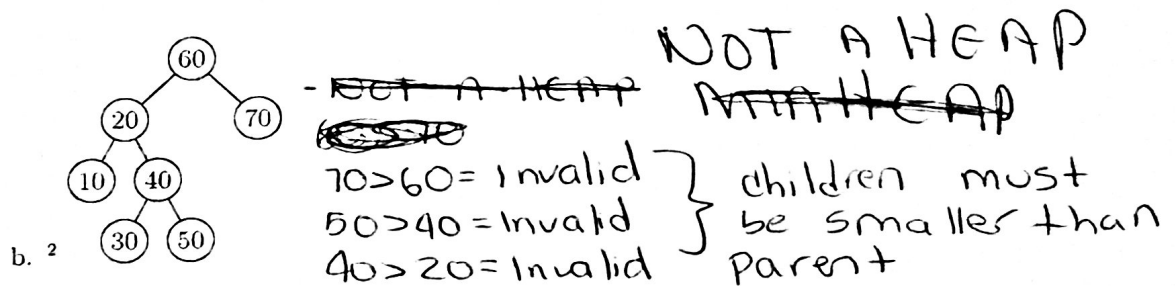 60
20 70
10 40
30 50
b. 2
NOT A HEAP
NOT A HEAP
70>60= Invalid
50>40= Invalid
40>20= Invalid
children must
be smaller than
parent